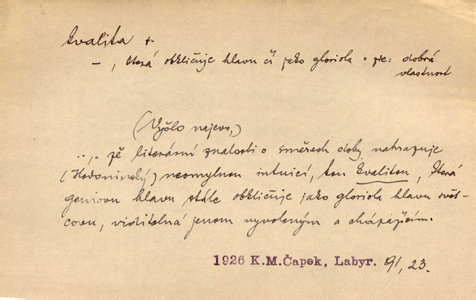 kvalita f.
–, která obkličuje hlavu čí jako gloriola = ze: dobrá
vlastnost
(Vyšlo najevo,)
..,. že literární znalosti o směrech doby nahrazuje
(Hodonínský) neomylnou intuicí, tou kvalitou, která
geniovu hlavu stále obkličuje jako gloriola hlavu svět-
covu, viditelná jenom vyvoleným a cházejícím.
1926 K.M.Čapek, Labyr. 91, 23.